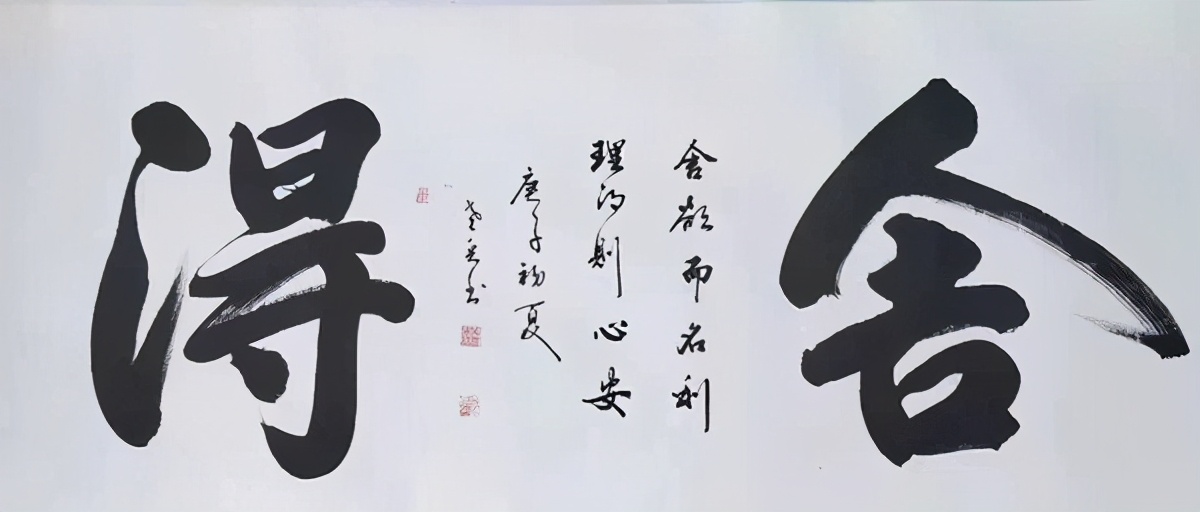 舍
舍欲而名利
理得则心安
庚子初夏
书
得